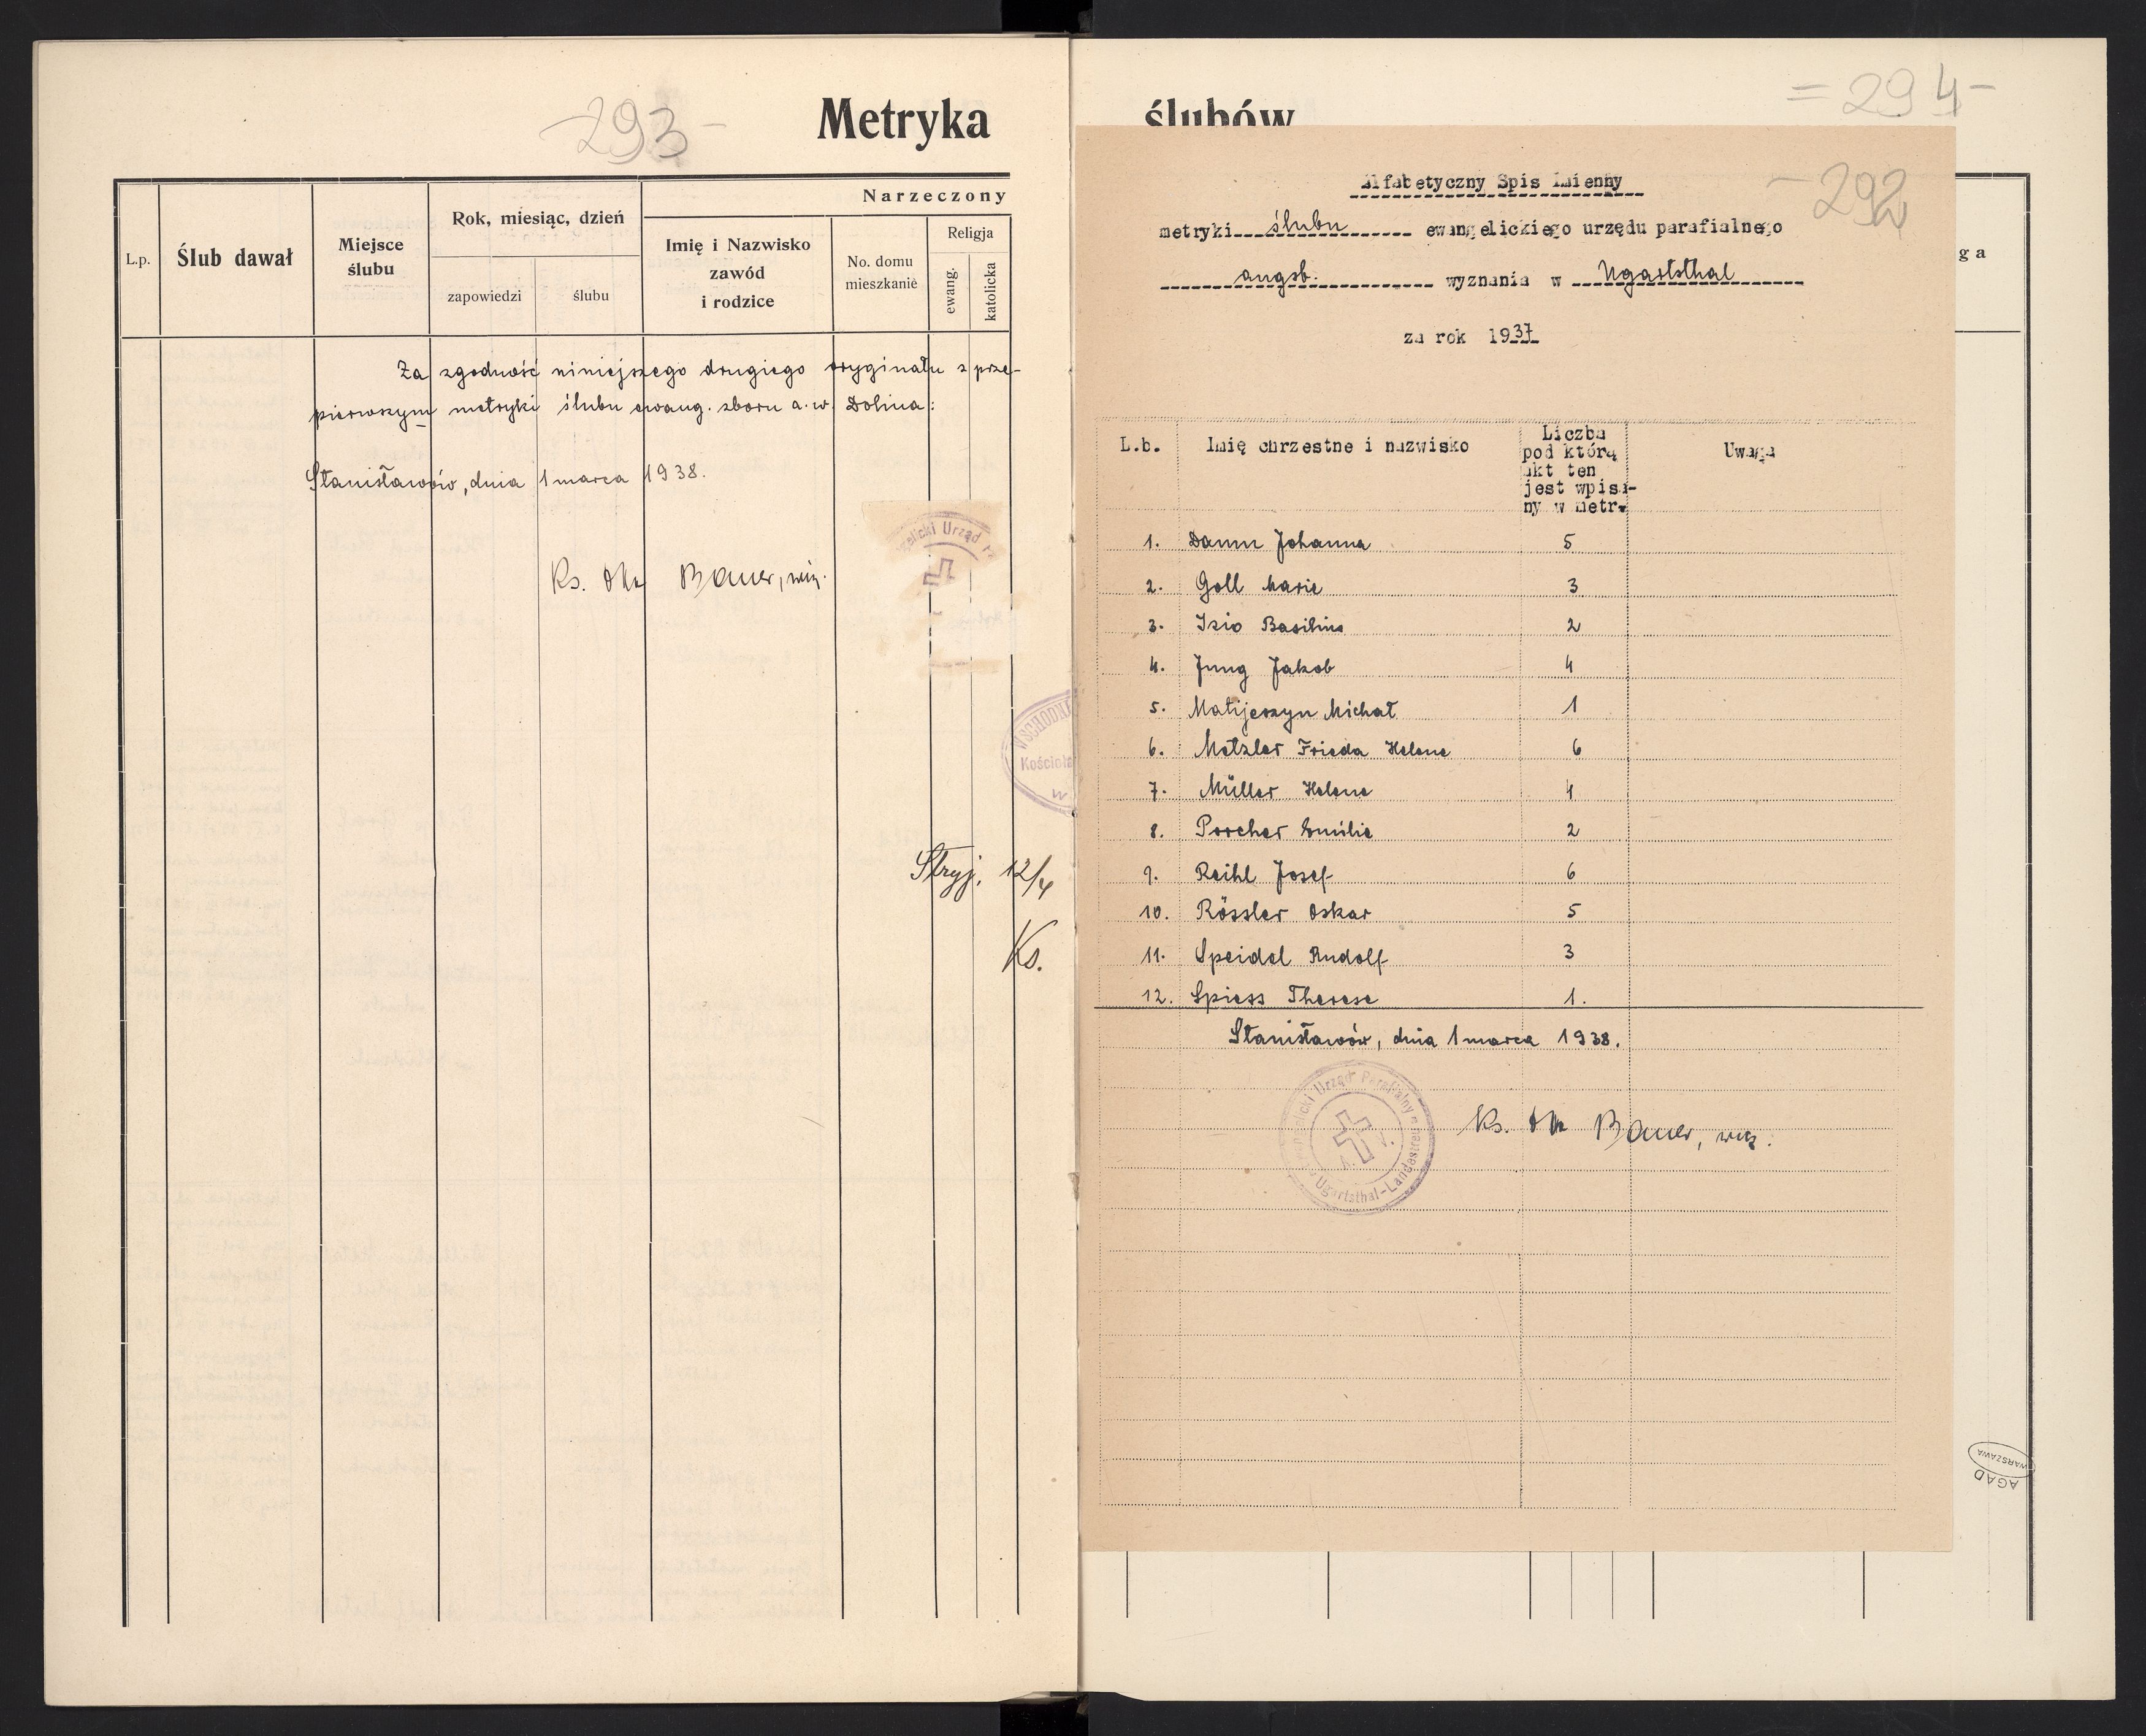 -293-
Metryka
L.p.
Ślub dawał
Miejsce
ślubu
Rok, miesiąc, dzień
zapowiedzi
ślubu
Narzeczony
Imię i Nazwisko
zawód
i rodzice
No. domu
mieszkanie
Religja
ewang.
katolicka
Za zgodność niniejszego drugiego oryginału z prze-
pierwszym metryki ślubu ewang. zboru a.w. Dolina:
Stanisławów, dnia 1 marca 1938.
Ks. Bauer, wik.
Urząd
WSCHODNI
Kościoła
w
Stryj, 12/4
Ks.
ślubów
=294-
-292
Alfabetyczny Spis Imienny
metryki ślubu ewangelickiego urzędu parafialnego
augsb. wyznania w Ugartsthal
za rok 1937
ga
L.b.
Imię chrzestne i nazwisko
Liczba
pod którą
akt ten
jest wpisa-
ny w metr.
Uwaga
1. Damm Johanna 5
2. Goll Marie 3
3. Izio Basilius 2
4. Jung Jakob 4
5. Matijeszyn Michał 1
6. Metzler Frieda Helene 6
7. Müller Helene 4
8. Porcher Emilie 2
9. Reihl Josef 6
10. Rössler Oskar 5
11. Speidel Rudolf 3
12. Spiess Therese 1.
Stanisławów, dnia 1 marca 1938.
Urząd Parafialny
Ugartsthal-Landestreu
Ks. Bauer, wik.
WARSZAWA
AGAD